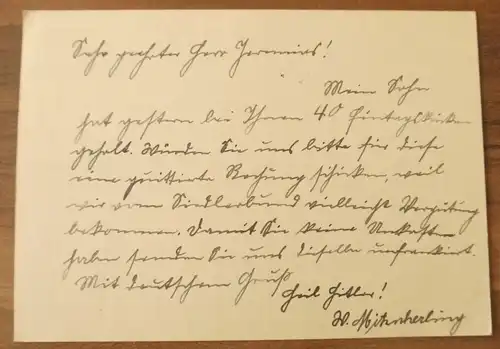 Sehr geehrter Herr Jeremias!
Mein Sohn
hat gestern bei Ihnen 40 Eintagskücken
geholt. Würden Sie uns bitte für diese
eine quittierte Rechnung schicken, weil
wir vom Siedlerbund vielleicht Vergütung
bekommen. Damit Sie keine Unkosten
haben senden Sie uns dieselbe unfrankiert.
Mit deutschem Gruß
Heil Hitler!
W. Mitzscherling